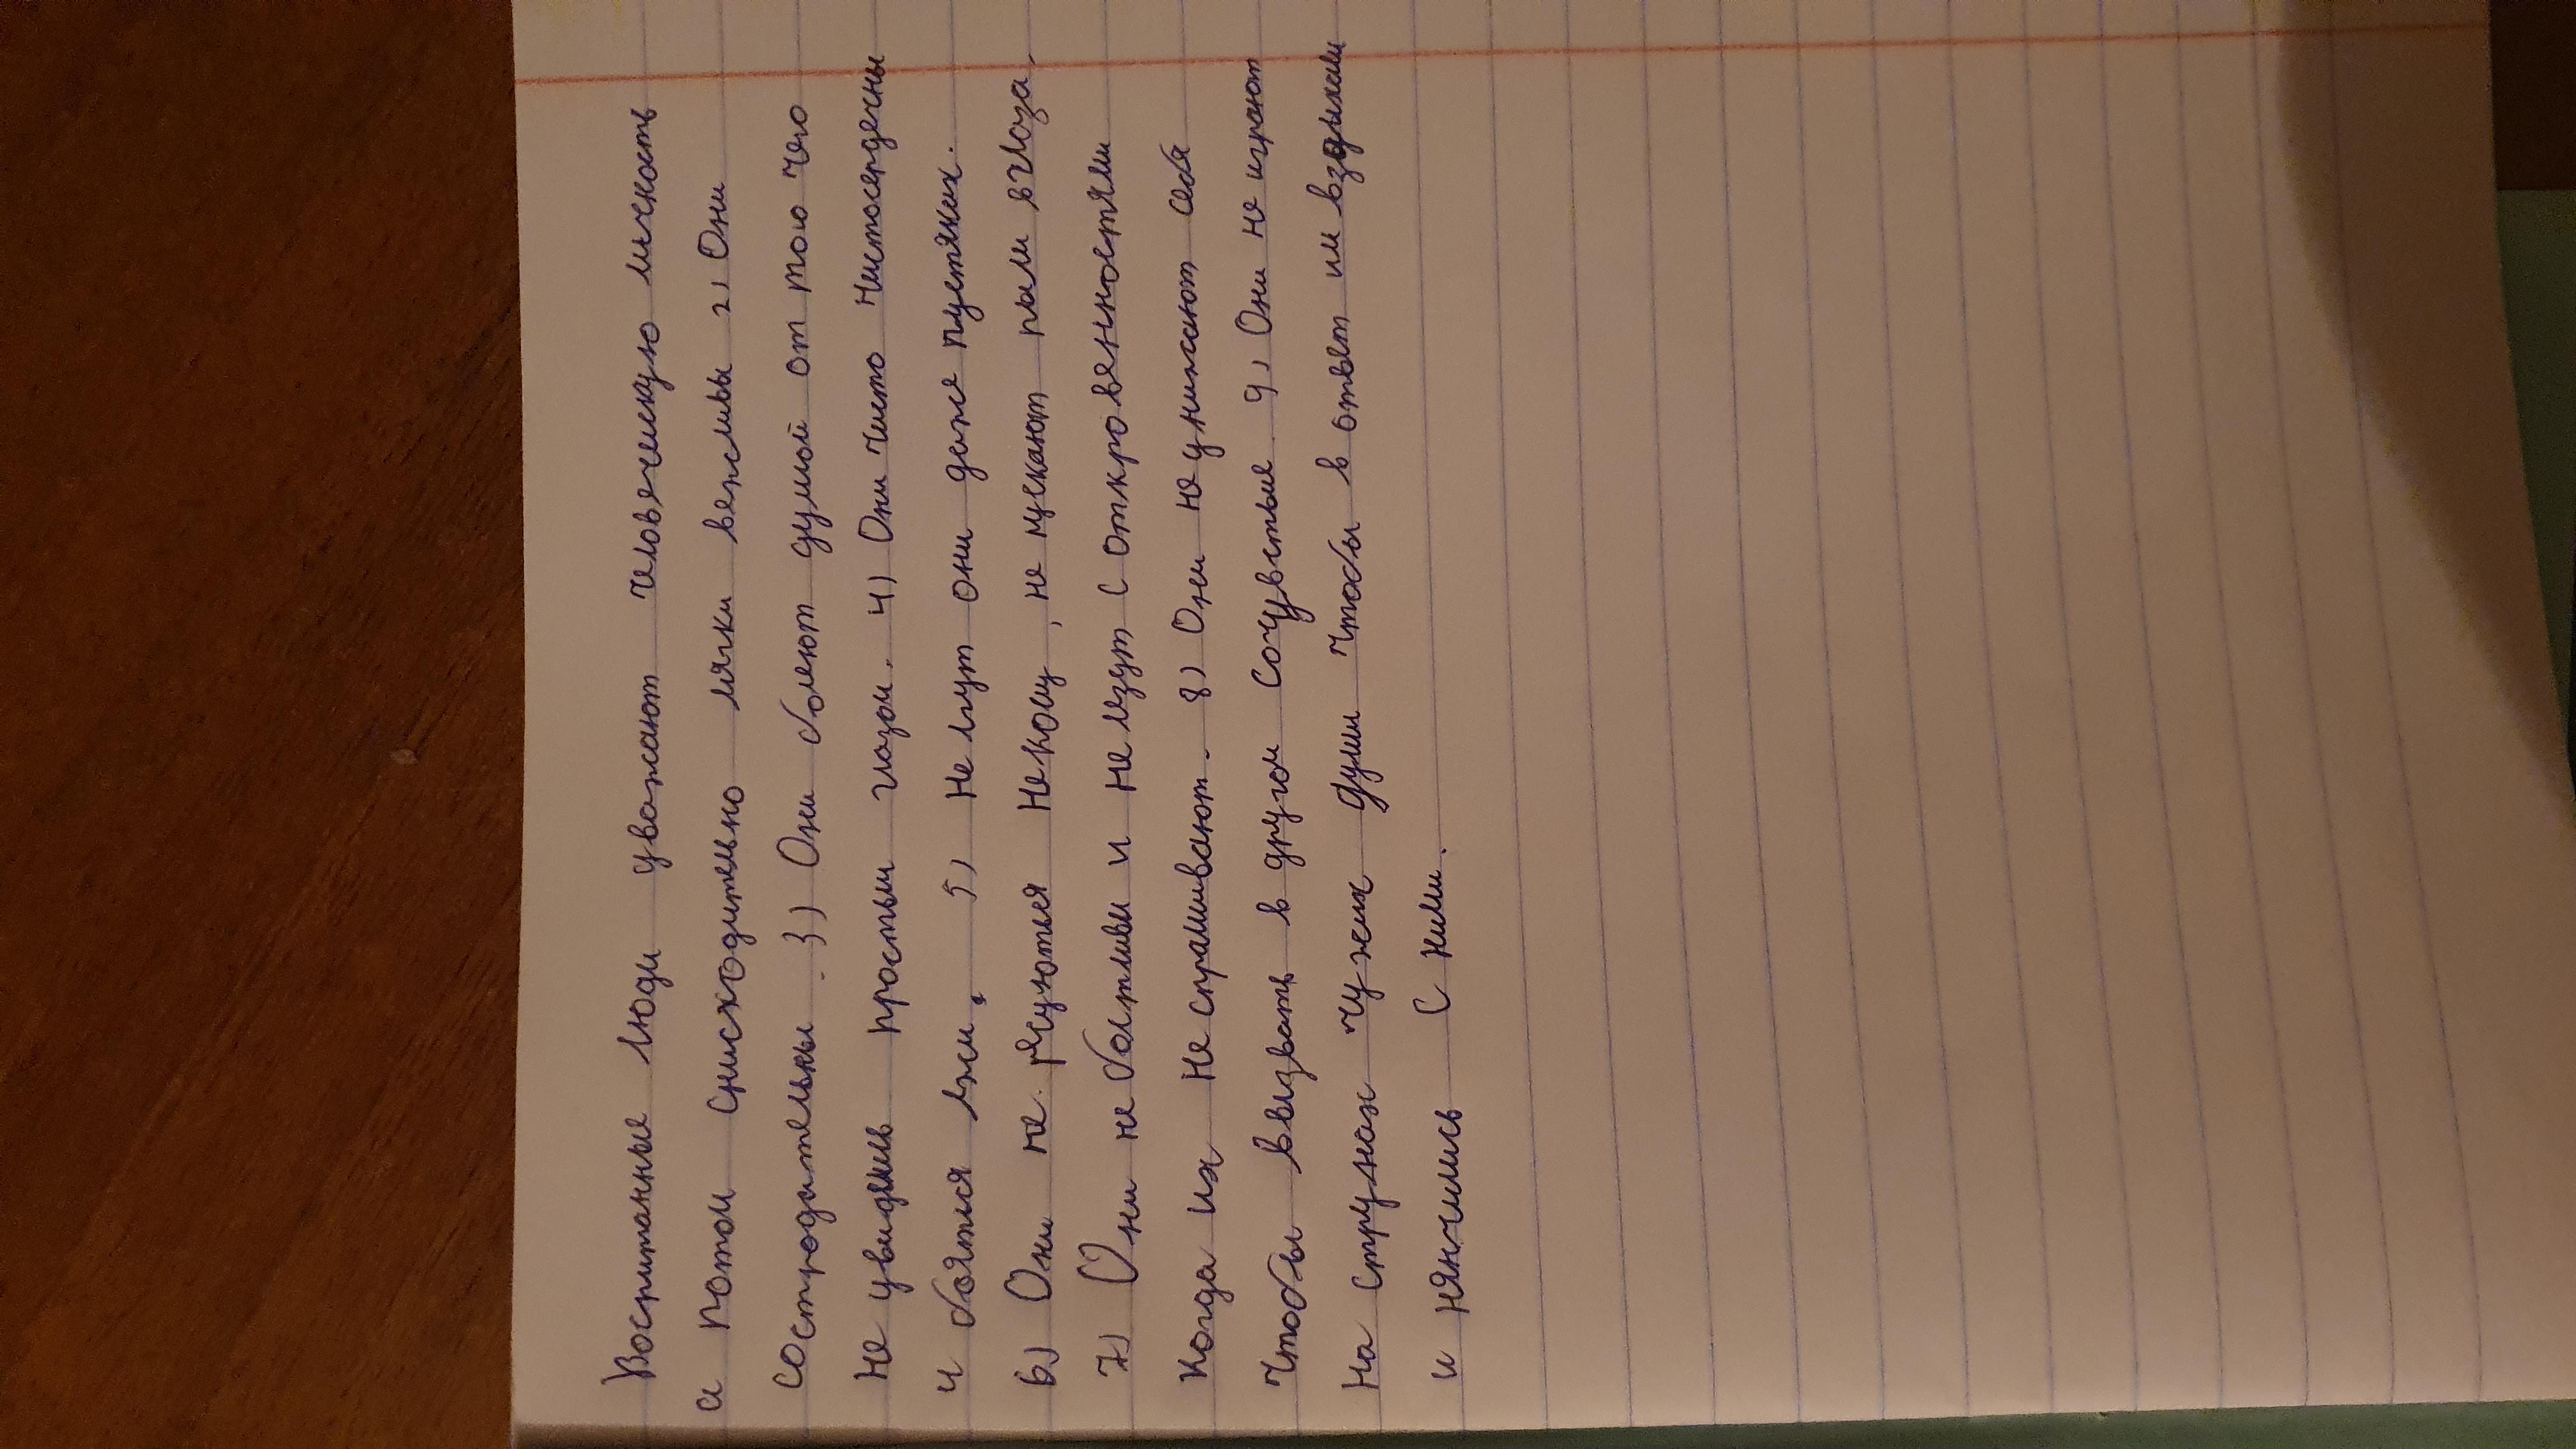 Воспитанные люди уважают человеческую личность
а потом снисходительно мягки вежливы 2) Они
сострадательны. 3) Они болеют душой от того чего
не увидишь простым глазом. 4) Они чисто чистосердечны
и боятся лжи. 5) Не лгут они даже пустяких.
6) Они не рисуются некому, не пускают пыли в глаза.
7) Они не болтливы и не лезут с откровенностями
когда их не спрашивают. 8) Они не унижают себя
чтобы ввызвать в другом сочувствие. 9) Они не играют
на струнах чужих души чтобы в ответ им вздыхали
и нянчились с ними.